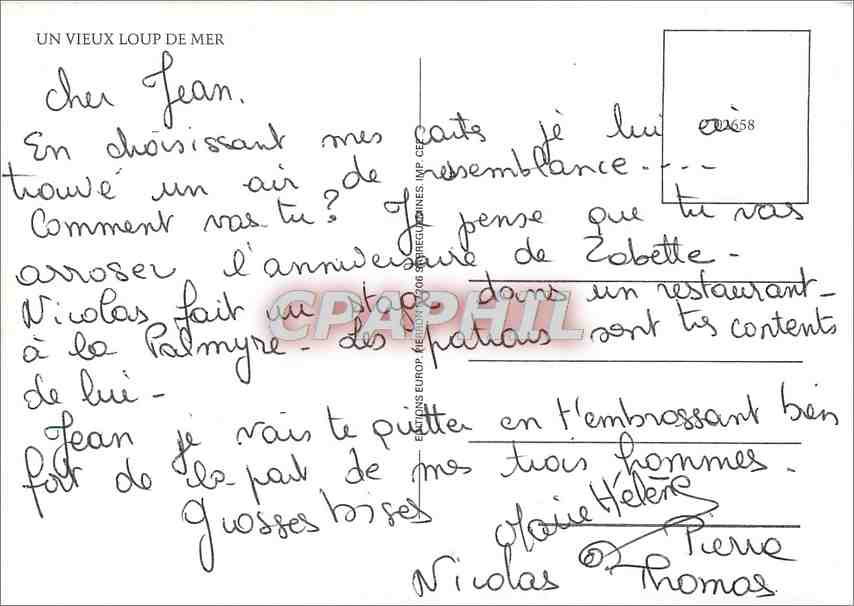 UN VIEUX LOUP DE MER
702658
cher Jean.
En choisissant mes carts je lui ai
trouvé un air de ressemblance----
Comment vas tu? Je pense que tu vas
arroser l'anniversaire de Zobette-
Nicolas fait un stage dans un restaurant-
à la Palmyre- des patrons sont très contents
de lui-
Jean je vais te quitter en t'embrassant bien
fort de la part de mes trois hommes.
grosses bises
Marie Hélène
Pierre
Nicolas Thomas
EDITIONS EUROP. PIERRON 57206 SARREGUEMINES. IMP. CEE
CPAPHIL